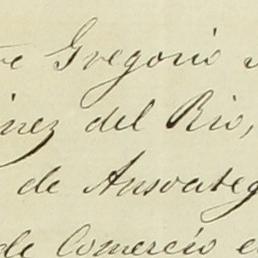 re Gregorio
inez del Rio,
de Ansoateg
de Comercio e